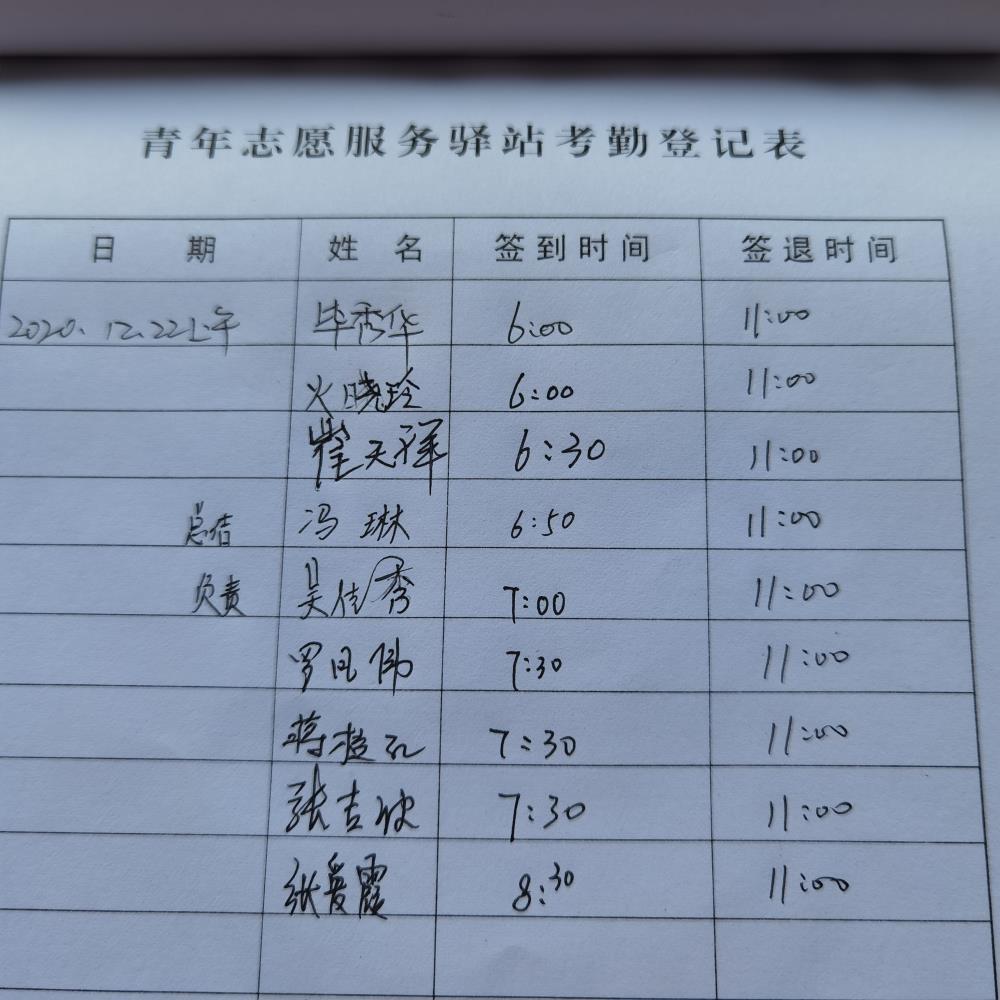 青年志愿服务驿站考勤登记表
日期 姓名 签到时间 签退时间
2020.12.22上午 毕秀华 6:00 11:00
火晓玲 6:00 11:00
崔天祥 6:30 11:00
总结 冯琳 6:50 11:00
负责 吴佳秀 7:00 11:00
罗凤伟 7:30 11:00
蒋 7:30 11:00
张吉 7:30 11:00
张爱霞 8:30 11:00